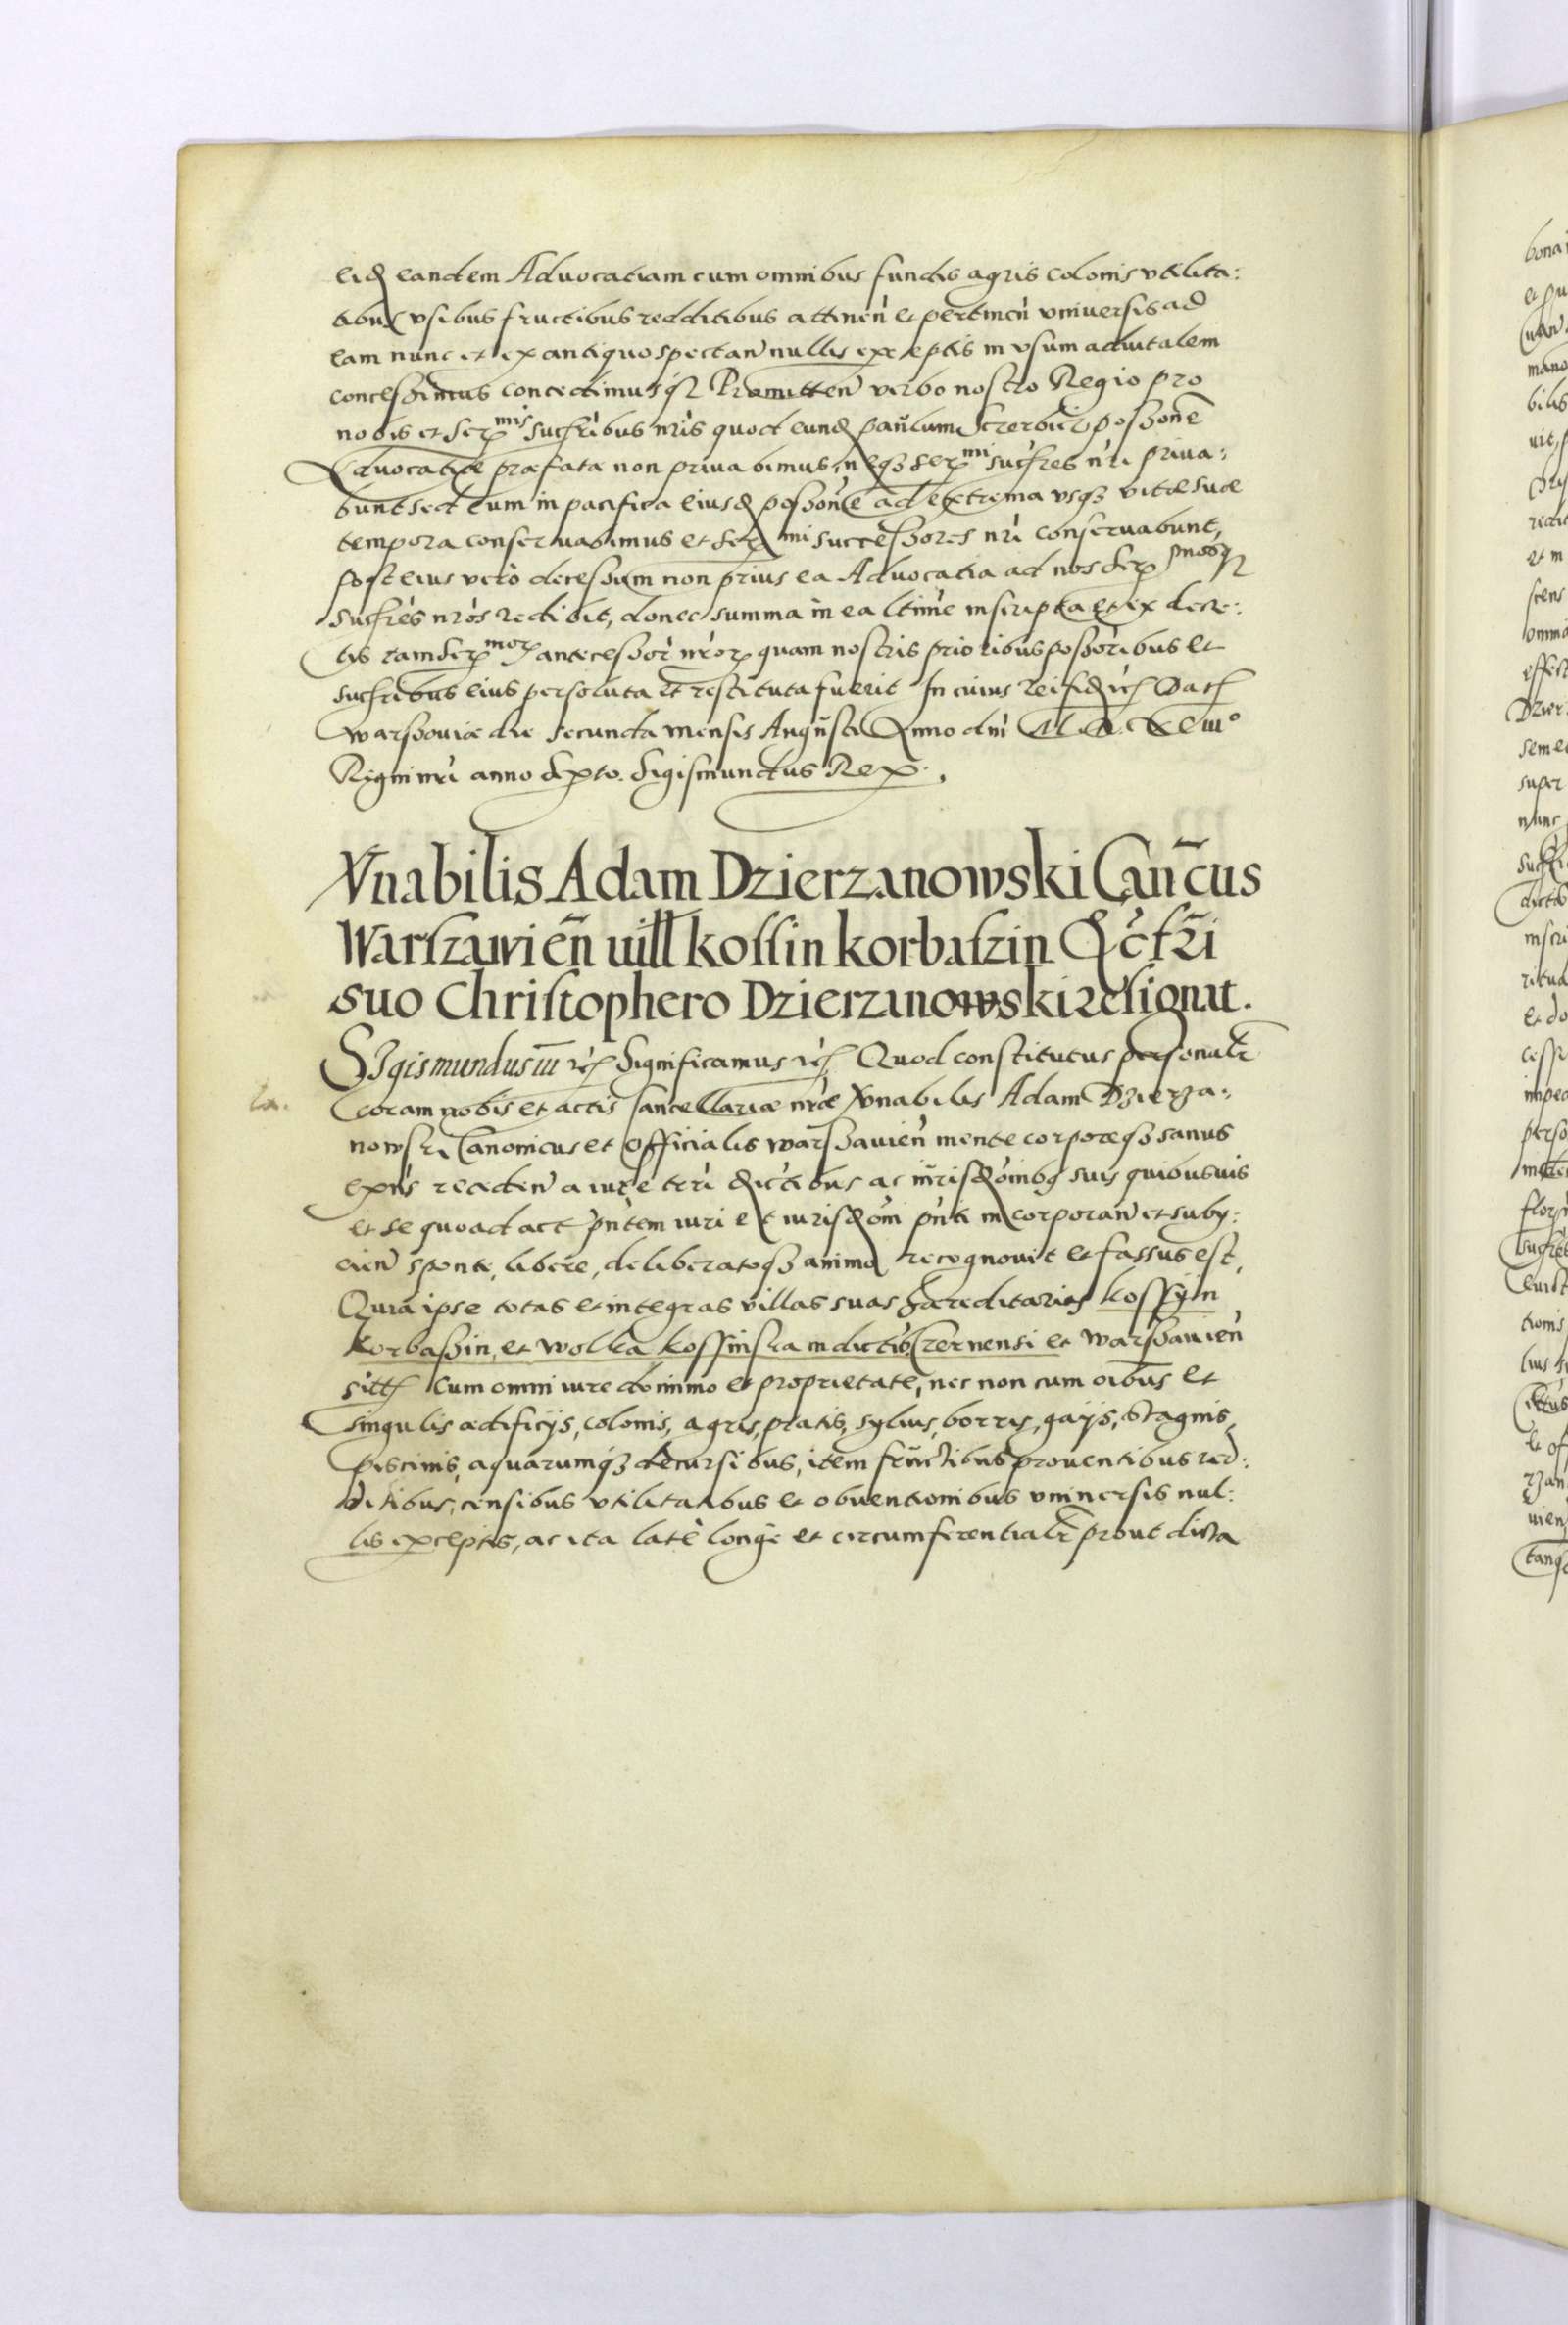 eidem eandem Aduocatiam cum omnibus fundis agris colonis vtilita:
tibus vsibus fructibus redditibus attinen̄ et pertinen̄ vniuersis ad
eam nunc et ex antiquo spectan̄ nullis exceptis in vsum aduitalem
concessimus concedimusq₃ Promitten̄ verbo nostro Regio pro
nobis et Ser^mis succ̄ribus nr̄is quod eund₃ paūlum possone
Aduocatiæ præfatæ non priuabimus, neq₃ ser^mi succ̄res nr̄i priua:
bunt sed eum in pacifica eiusd₃ possone ad extrema vsq₃ vitæ suæ
tempora conseruabimus et ser^mi successores nr̄i conseruabunt,
post eius vero decessum non prius ea Aduocatia ad nos Ser^mosq₃
succ̄res nr̄os redibit, donec summa in ea ltime inscripta et ex decre:
tis tam Ser^mor antecessor̄ nr̄or quam nostris prioribus possoribus et
succ̄ribus eius persoluta et restituta fuerit In cuius rei fid₃ rc̄ Dat
Warssouiæ die secunda mensis Augusti Anno dn̄i M.D.XCiii°
Regni nr̄i anno sexto. Sigismundus Rex.
Vn̄abilis Adam Dzierzanowski Can̄cus
Warszawien̄ uill kossin korbaszin &c̄ fr̄i
suo Christophero Dzierzanowski resignat.
SIgismundus iii rc̄ Significamus rc̄ Quod constitutus personalr̄
coram nobis et actis Cancellariæ nr̄æ Vn̄abilis Adam Dzierza:
nowski Canonicus et Officialis warssauien̄ mente corporeq₃ sanus
expr̄s receden̄ a iure terr̄i dictibus ac iurisd₃oinibq₃ suis quibusuis
et se quoad act pn̄tem iuri et iurisd₃oni pn̄ti incorporan̄ et suby:
cien̄ sponte, libere, deliberatoq₃ animo recognouit et fassus est,
Quia ipse totas et integras villas suas hæreditarias kossyin
korbassin, et wolka kossinska in dictib₃ Czernensi et warssauien̄
sitt cum omni iure dominio et proprietate, nec non cum oibus et
singulis ædificijs, colonis, agris, pratis, syluis, borris, gaijs, stagnis,
piscinis, aquarumq₃ decursibus, item fructibus prouentibus red:
ditibus, censibus vtilitatibus et obuentionibus vniuersis nul:
lis exceptis, ac ita late longe et circumferentialr̄ prout dicta